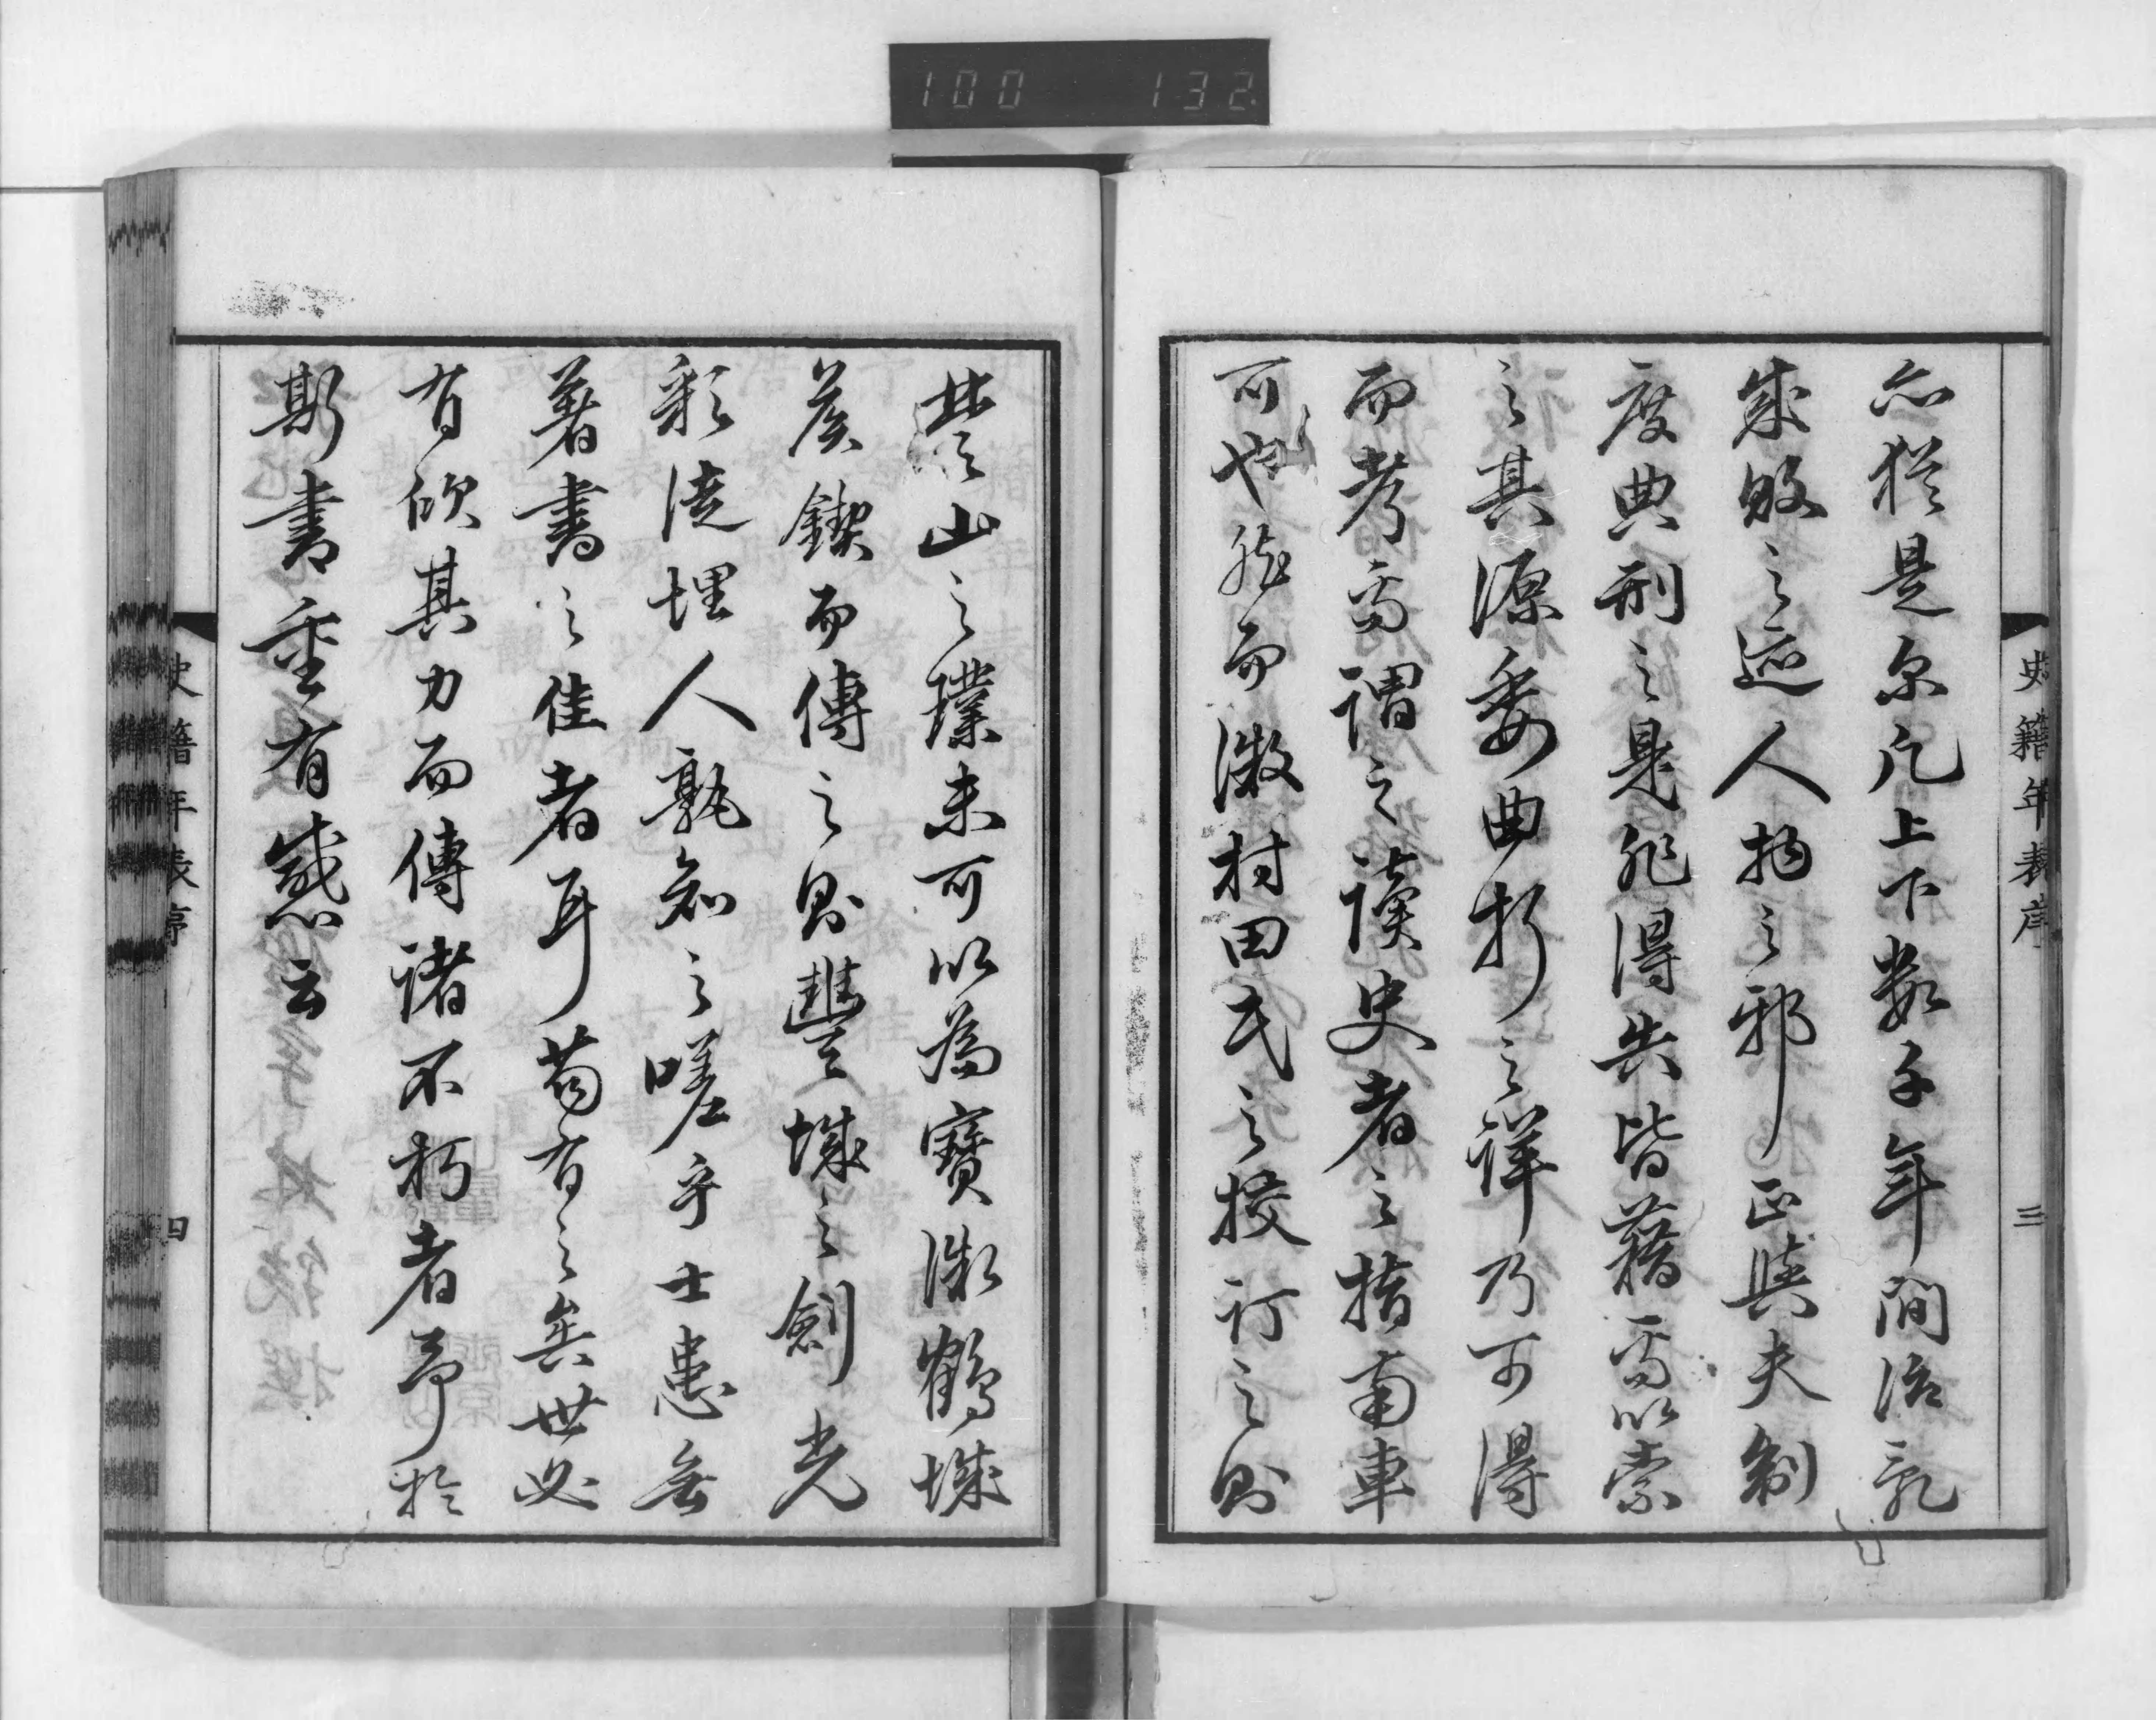 100 132
史籍年表序 三
亦猶是尔凡上下數千年間治乱
成敗之迹人物之邪正與夫制
度典刑之是非得失皆藉焉以索
之其源委曲折之詳乃可得
而考焉謂之讀史者之指南車
可也然而微村田氏之挍訂之則
楚山之璞未可以為寶微鶴城
矦鍥而傳之則豐城之劍光
彩徒埋人孰知之嗟乎士患無
著書之佳者耳苟有之矣世必
有欣其力而傳諸不朽者予於
斯書重有感云
史籍年表序 四